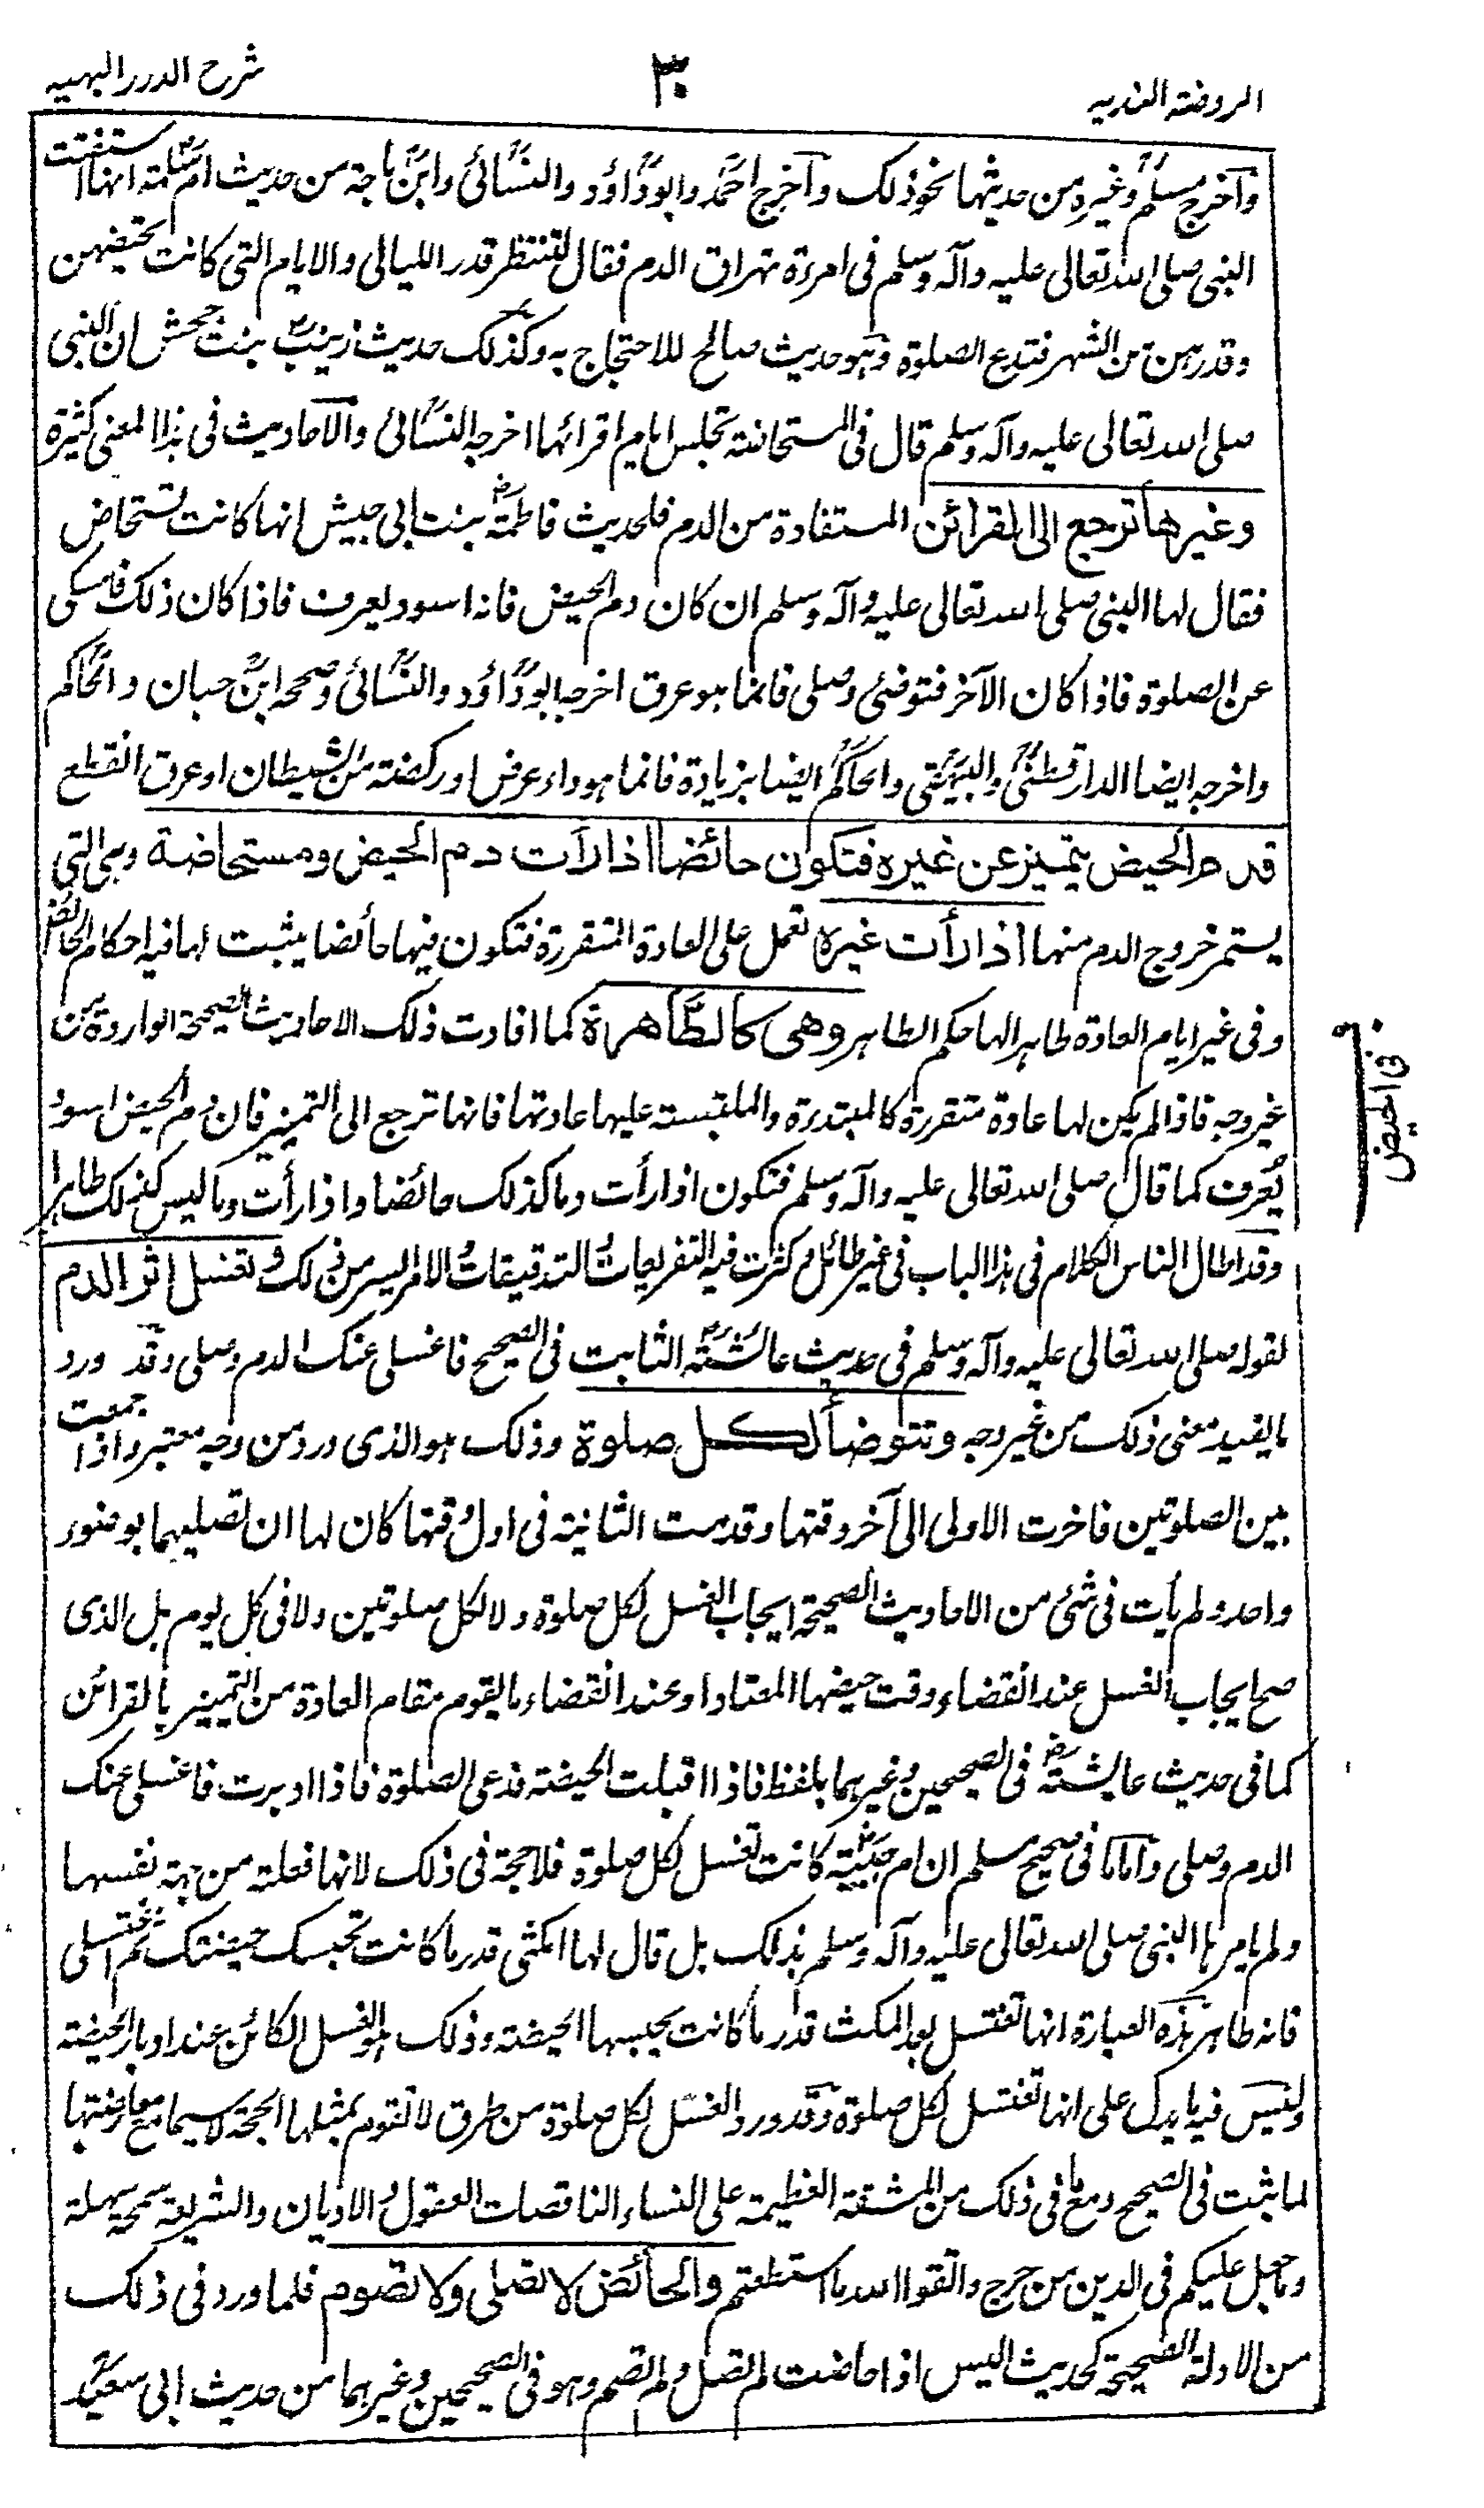 الروضة الندية
٣٠
شرح الدرر البهية
وأخرج مسلم وغيره من حديثها نحو ذلك وأخرج احمد وابو داؤد والنسائى وابن ماجة من حديث ام سلمة انها استفتت
النبى صلى الله تعالى عليه وآله وسلم فى امرءة تهراق الدم فقال لتنتظر قدر الليالى والايام التى كانت تحيضهن
وقدرهن من الشهر فتدع الصلوة وهو حديث صالح للاحتجاج به وكذلك حديث زينب بنت جحش ان النبى
صلى الله تعالى عليه وآله وسلم قال فى المستحاضة تجلس ايام اقرائها اخرجه النسائى والاحاديث فى هذا المعنى كثيرة
وغيرها ترجع الى القرائن المستفادة من الدم فلحديث فاطمة بنت ابى حبيش انها كانت تستحاض
فقال لها النبى صلى الله تعالى عليه وآله وسلم ان كان دم الحيض فانه اسود يعرف فاذا كان ذلك فامسكى
عن الصلوة فاذا كان الآخر فتوضئى وصلى فانما هو عرق اخرجه ابو داؤد والنسائى وصححه ابن حبان والحاكم
واخرجه ايضا الدارقطنى والبيهقى والحاكم ايضا بزيادة فانما هو داء عرض او ركضة من الشيطان او عرق انقطع
فدم الحيض يتميز عن غيره فتكون حائضا اذا رأت دم الحيض ومستحاضة وهى التى
يستمر خروج الدم منها اذا رأت غيره تعمل على العادة المتقررة فتكون فيها حائضا يثبت لها فيه احكام الحائض
وفى غير ايام العادة طاهر الها حكم الطاهر وهى كالطاهرة كما افادت ذلك الاحاديث الصحيحة الواردة من
غير وجه فاذا لم يكن لها عادة متقررة كالمبتدءة والملتبسة عليها عادتها فانها ترجع الى التميز فان دم الحيض اسود
يُعرف كما قال صلى الله تعالى عليه وآله وسلم فتكون اذا رأت دما كذلك حائضا واذا رأت دما ليس كذلك طاهرا
وقد اطال الناس الكلام فى هذا الباب فى غير طائل وكثرت فيه التفريعات والتدقيقات والامر ايسر من ذلك وتغسل اثر الدم
لقوله صلى الله تعالى عليه وآله وسلم فى حديث عائشة الثابت فى الصحيح فاغسلى عنك الدم وصلى وقد ورد
ما يفيد معنى ذلك من غير وجه وتتوضأ لكل صلوة وذلك هو الذى ورد من وجه معتبر واذا جمعت
بين الصلوتين فاخرت الاولى الى آخر وقتها وقدمت الثانية فى اول وقتها كان لها ان تصليهما بوضوء
واحد ولم يأت فى شئ من الاحاديث الصحيحة ايجاب الغسل لكل صلوة ولا لكل صلوتين ولا فى كل يوم بل الذى
صح ايجاب الغسل عند انقضاء وقت حيضها المعتاد او عند انقضاء ما يقوم مقام العادة من التمييز بالقرائن
كما فى حديث عايشة فى الصحيحين وغيرهما بلفظ فاذا اقبلت الحيضة فدعى الصلوة فاذا ادبرت فاغسلى عنك
الدم وصلى واما ما فى صحيح مسلم ان ام حبيبة كانت تغتسل لكل صلوة فلا حجة فى ذلك لانها فعلته من جهة نفسها
ولم يامرها النبى صلى الله تعالى عليه وآله وسلم بذلك بل قال لها امكثى قدر ما كانت تحبسك حيضتك ثم اغتسلى
فانه ظاهر هذه العبارة انها تغتسل بعد المكث قدر ما كانت يحبسها الحيضة وذلك هو الغسل الكائن عند ادبار الحيضة
وليس فيه ما يدل على انها تغتسل لكل صلوة وقد ورد الغسل لكل صلوة من طرق لا تقوم بمثلها الحجة لا سيما مع معارضتها
لما ثبت فى الصحيح ومع ما فى ذلك من المشقة العظيمة على النساء الناقصات العقول والاديان والشريعة سمحة سهلة
وما جعل عليكم فى الدين من حرج واتقوا الله ما استطعتم والحائض لا تصلى ولا تصوم فلما ورد فى ذلك
من الادلة الصحيحة كحديث اليس اذا حاضت لم تصل ولم تصم وهو فى الصحيحين وغيرهما من حديث ابى سعيد
فى الحيض